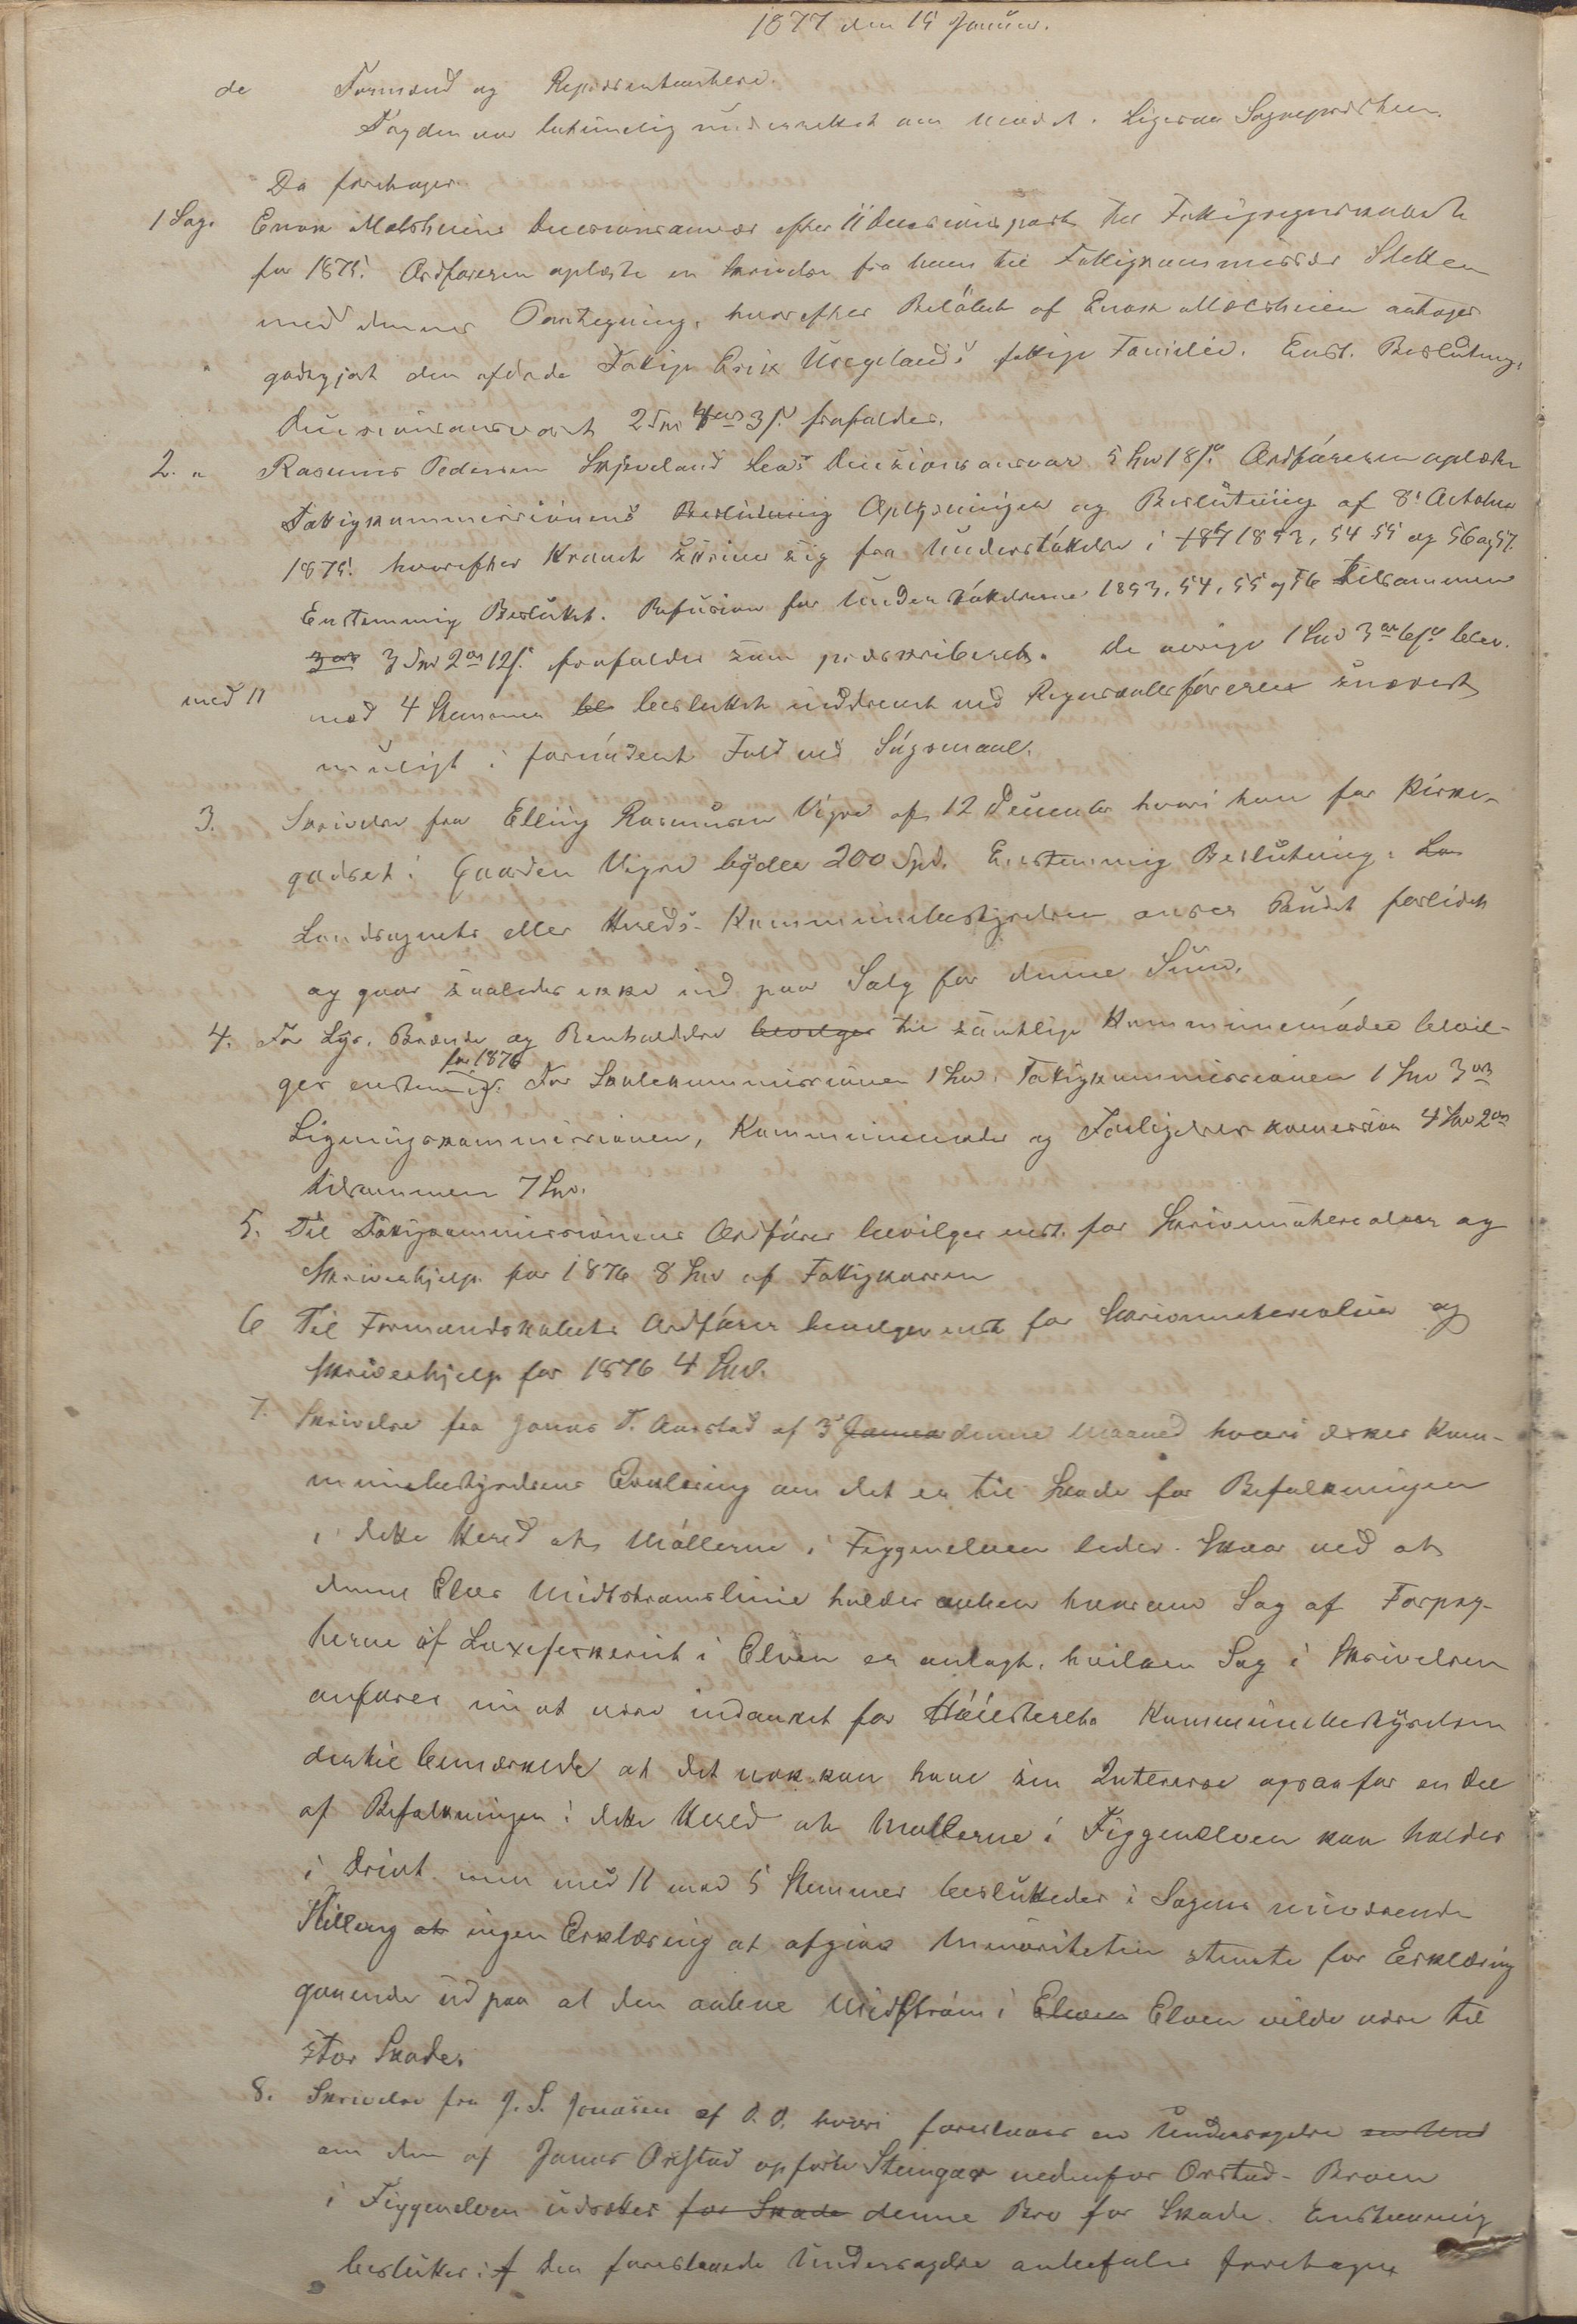 1877 den 15 Januar.
de Formænd og Repræsentantere.
Fogden var betimelig underrettet om Mødet. Ligesaa Sognepresten.
Da foretoges
1 Sag. Enok Malsheims Decisionsansvar efter 11 Decisionspost til Fattigregnskabet
for 1875. Ordføreren oplæste en Skrivelse fra ham til Fattigkommissær Sletten
med dennes Paategning, hvorefter Beløbet af Enok Malsheim antages
godtgjort den afdøde Fattige Erik Usegelands fattige Familie. Enst. Beslutning:
Decisionsansvaret 2 Spd 4 ort 3 s. frafaldes.
2. " Rasmus Pedersen Skjæveland Leas Decisionsansvar 5 Spd 18 s. Ordføreren oplæste
Fattigkommissionens Beslutning Oplysninger og Beslutning af 8. October
1875. hvorefter Kravet skriver sig fra Understøttelse i 1867 1853, 54 55 og 56 og 57.
Enstemmig Besluttet. Refusion for Understøttelserne 1853, 54, 55 og 56 tilsammen
3 ort 3 Spd 2 ort 12 s. frafaldes som præskriberet. De øvrige 1 Spd 3 ort 6 s. blev.
med 11 mod 4 Stemmer be besluttet inddrevet ved Regnskabsføreren snarest
muligt i fornødent Fald ved Søgsmaal.
3. Skrivelse fra Elling Rasmusen Vigre af 12 December hvori han for Kirke-
godset i Gaarden Vigre byder 200 Spd. Enstemmig Beslutning: Lan
Landsognets eller Hreds-Kommunebestyrelsen anser Budet forlidet
og gaar saaledes ikke ind paa Salg for denne Sum.
4. For Lys, Brænde og Renholdelse bevilges til samtlige Kommunemøder bevil-
ges enstemmig: for 1876 For Skolekommissionen 1 Spd. Fattigkommissionen 1 Spd 3 ort
Ligningskommissionen, Kommunemøder og Forligelses komission 4 Spd 2 ort
tilsammen 7 Spd.
5. Til Fattigkommissionens Ordfører bevilges enst. for Skrivmaterealier og
Skriverhjelp for 1876 8 Spd af Fattigkassen
6 Til Formandskabets Ordfører bevilges enst for Skrivmaterealier og
Skriverhjelp for 1876 4 Spd.
7. Skrivelse fra Jonas T. Aarstad af 3 Januar denne Maaned hvori æskes Kom-
munebestyrelsens Erklæring om det er til Skade for Befolkningen
i dette Hered at Møllerne i Figgenelven lider Skaar ved at
denne Elvs Midtstrømslinie holdes aaben hvorom Sag af Forpag-
terne af Laxefiskeriet i Elven er anlagt, hvilken Sag i Skrivelsen
anføres nu at være indanket for Høiesteret. Kommunebestyrelsen
dertil bemærkede at det nok kan have sin Interesse ogsaa for en Del
af Befolkningen i dette Hered at Møllerne i Figgenelven kan holdes
i Drivt men med 11 mod 5 Stemmer besluttedes i Sagens nuværende
Stilling at ingen Erklæring at afgive Minoriteten stemte for Erklæring
gaaende ud paa at den aabne Midtstrøm i Elven Elven vilde være til
stor Skade.
8. Skrivelse fra J. S. Jonasen af D. D. hvori foreslaaes en Undersøgelse
om den af Jonas Orstad opførte Steingar nedenfor Orstad-Broen
i Figgenelven udsætter for Skade denne Bro for Skade. Enstemmig
besluttes: At den foreslaaede Undersøgelse anbefales foretaget